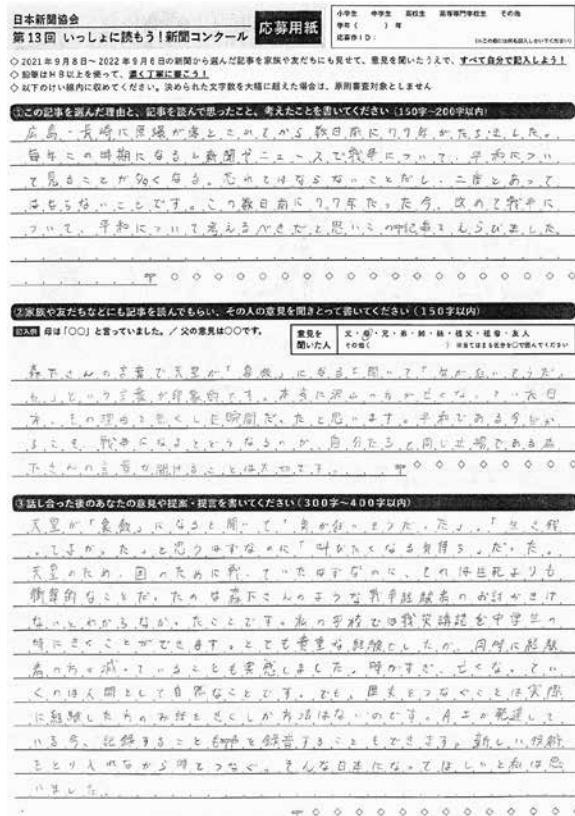 日本新聞協会
第13回 いっしょに読もう!新聞コンクール
応募用紙
小学生 中学生 高校生 高等専門学校生 その他
学年( )年
応募作ID:
(※この欄には何も記入しないでください)
◇2021年9月8日~2022年9月6日の新聞から選んだ記事を家族や友だちにも見せて、意見を聞いたうえで、すべて自分で記入しよう!
◇鉛筆はHB以上を使って、濃く丁寧に書こう!
◇以下のけい線内に収めてください。決められた文字数を大幅に超えた場合は、原則審査対象としません
①この記事を選んだ理由と、記事を読んで思ったこと、考えたことを書いてください(150字~200字以内)
広島・長崎に原爆が落とされてから数日前に77年がたちました。
毎年この時期になると新聞やニュースで戦争について、平和につい
て見ることが多くなる。忘れてはならないことだし、二度とあって
はならないことです。この数日前に77年たった今、改めて戦争に
ついて、平和について考えるべきだと思いこの記事をえらびました
②家族や友だちなどにも記事を読んでもらい、その人の意見を聞きとって書いてください(150字以内)
記入例 母は「○○」と言っていました。/父の意見は○○です。
意見を聞いた人
父・母・兄・弟・姉・妹・祖父・祖母・友人
その他( ) ※当てはまる区分を○で囲んでください
森下さんの言葉で天皇が「象徴」になると聞いて「気が狂いそうだっ
た」という言葉が印象的です。本当に沢山の方が亡くなっていった日
本、その理由を無くした瞬間だったと思います。平和である今だか
らこそ、戦争になるとどうなるのか、自分たちと同じ立場である森
下さんの言葉が聞けることは大切です。
③話し合った後のあなたの意見や提案・提言を書いてください(300字~400字以内)
天皇が「象徴」になると聞いて「気が狂いそうだった」。「生き残
ってよかった」と思うはずなのに「叫びたくなる気持ち」だった。
天皇のため、国のために戦っていたはずなのに、それは生死よりも
衝撃的なことだったのは森下さんのような戦争経験者のお話がきけ
ないとわからなかったことです。私の学校では戦災講話を中学生の
時にきくことができます。とても貴重な経験でしたが、同時に経験
者の方が減っていることも実感しました。時がすぎ、亡くなってい
くのは人間として自然なことです。でも、歴史をつなぐことは実際
に経験した方のお話をきくしか方法はないのです。AIが発達して
いる今、記録することも声を録音することもできます。新しい技術
をとり入れながら時をつなぐ。そんな日本になってほしいと私は思
いました。